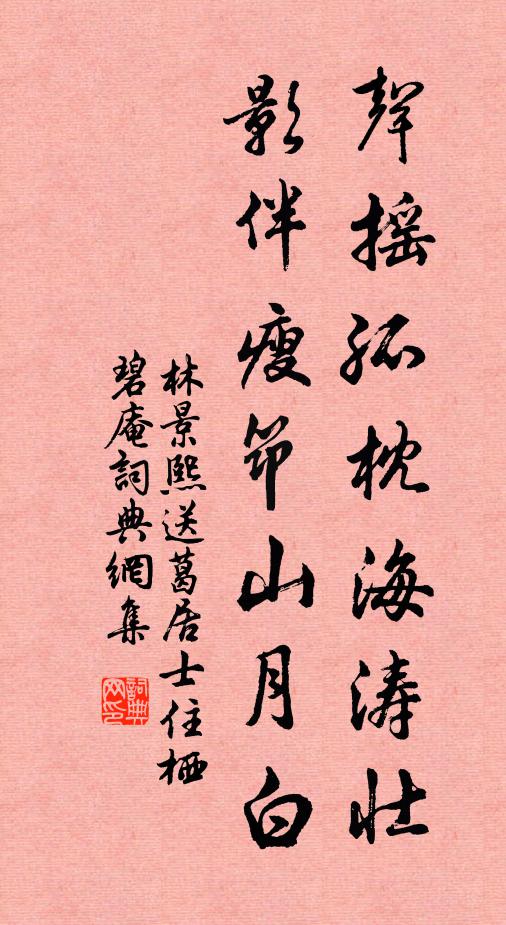 聲摇孤枕海涛壮
影伴瘦筇山月白
林景熙送葛居士住栖
碧庵詞典網集
詞典網印